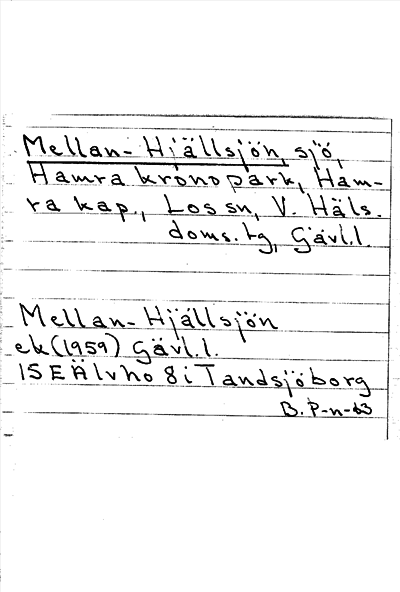 Mellan-Hjällsjön, sjö,
Hamra kronopark, Ham-
ra kap., Los sn, V. Häls.
doms.tg, Gävl.l.
Mellan-Hjällsjön
ek(1959) Gävl.l.
15EÄlvho 8i Tandsjöborg
B. P-n-63